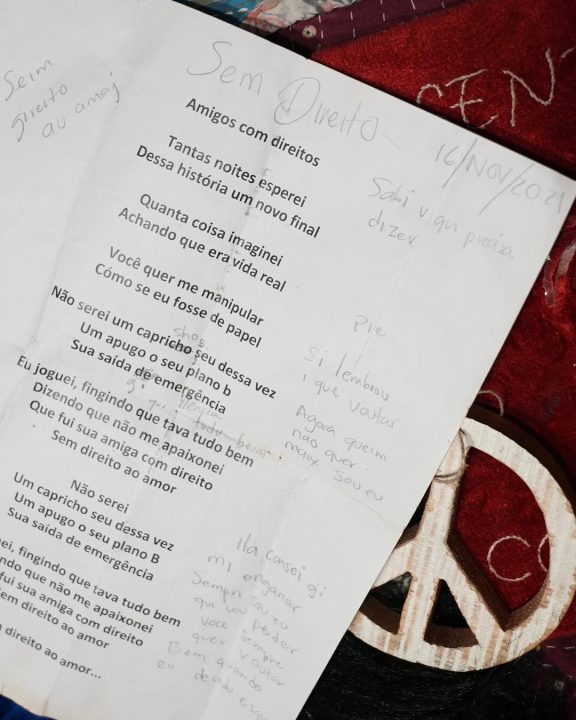 Sem Direito
16/NOV/2021
Seim
direito
au amaj
Amigos com direitos
Tantas noites esperei
Dessa história um novo final
Quanta coisa imaginei
Achando que era vida real
Você quer me manipular
Cómo se eu fosse de papel
Não serei um capricho seu dessa vez
Um apugo o seu plano b
Sua saída de emergência
Eu joguei, fingindo que tava tudo bem
Dizendo que não me apaixonei
Que fui sua amiga com direito
Sem direito ao amor
Não serei
Um capricho seu dessa vez
Um apugo o seu plano B
Sua saída de emergência
fingindo que tava tudo bem
que não me apaixonei
fui sua amiga com direito
direito ao amor
direito ao amor...
Sabi v qui precisa
dizer
Pre
Si lembrou
i que voutar
Agora queim
não quer
maix sou eu
tudu bein
mi enganar
Sempri sou eu
qui vou perder
você sempre
quer voutar
Bem quando
eu
SENT
CO